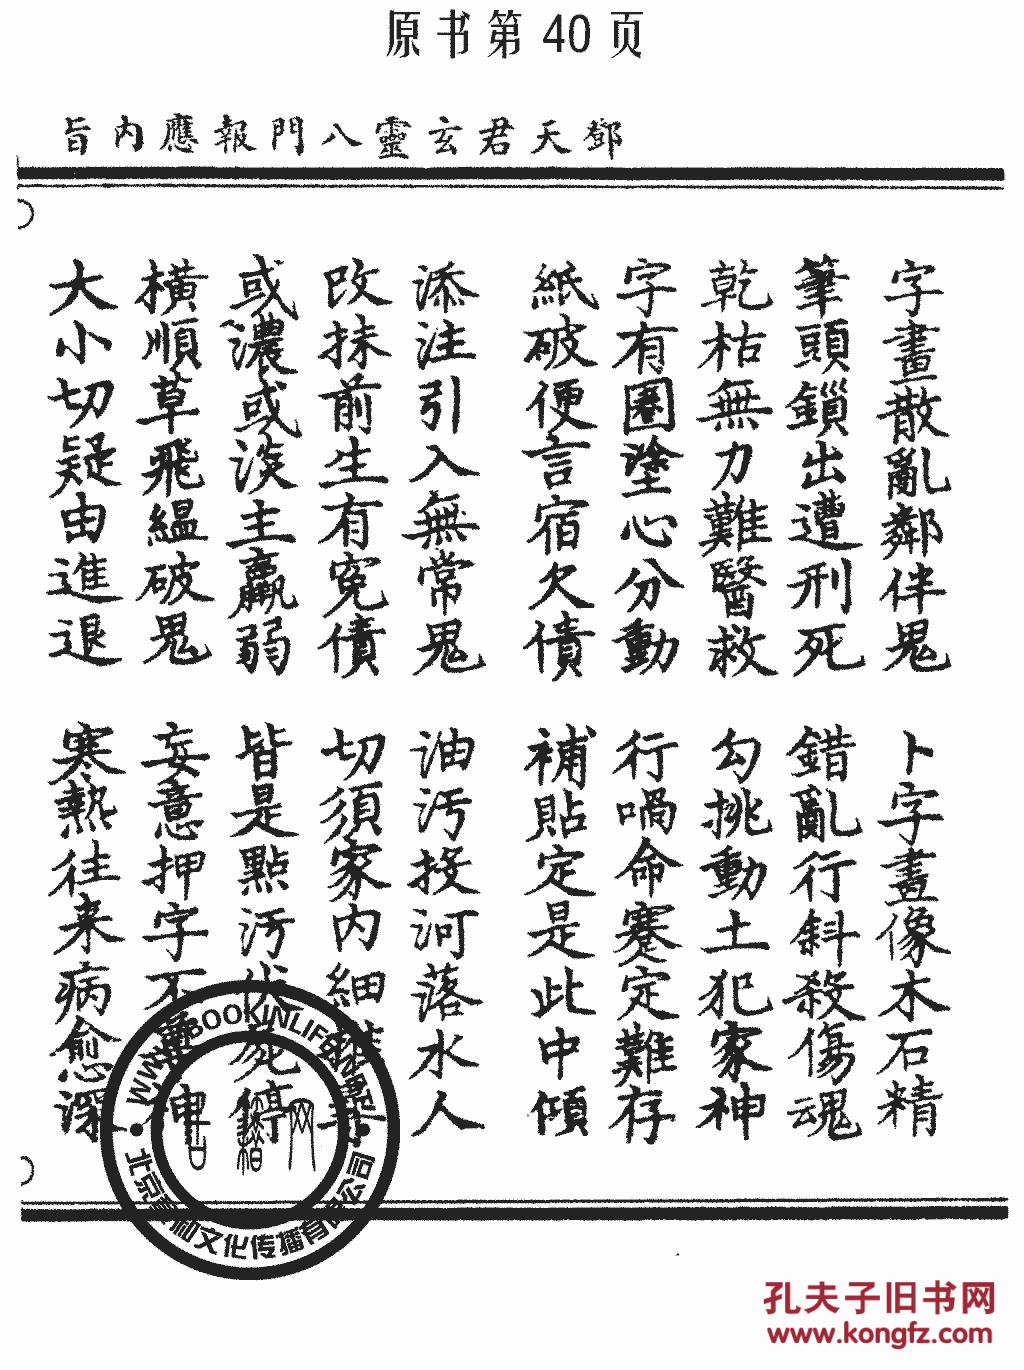 原书第 40 页
鄧天君玄靈八門報應內旨
字畫散亂鄰伴鬼 卜字畫像木石精
筆頭鎖出遭刑死 錯亂行斜殺傷魂
乾枯無力難醫救 勾挑動土犯家神
字有圈塗心分動 行喎命蹇定難存
紙破便言宿欠債 補貼定是此中傾
添注引入無常鬼 油污投河落水人
改抹前生有冤債 切須家內細
或濃或淡主羸弱 皆是點污伏屍
橫順草飛縕破鬼 妄意押字不 神
大小切疑由進退 寒熱往来病愈深
WWW.BOOKINLIFE
北京 和文化传播有限公司
古籍网
孔夫子旧书网
www.kongfz.com